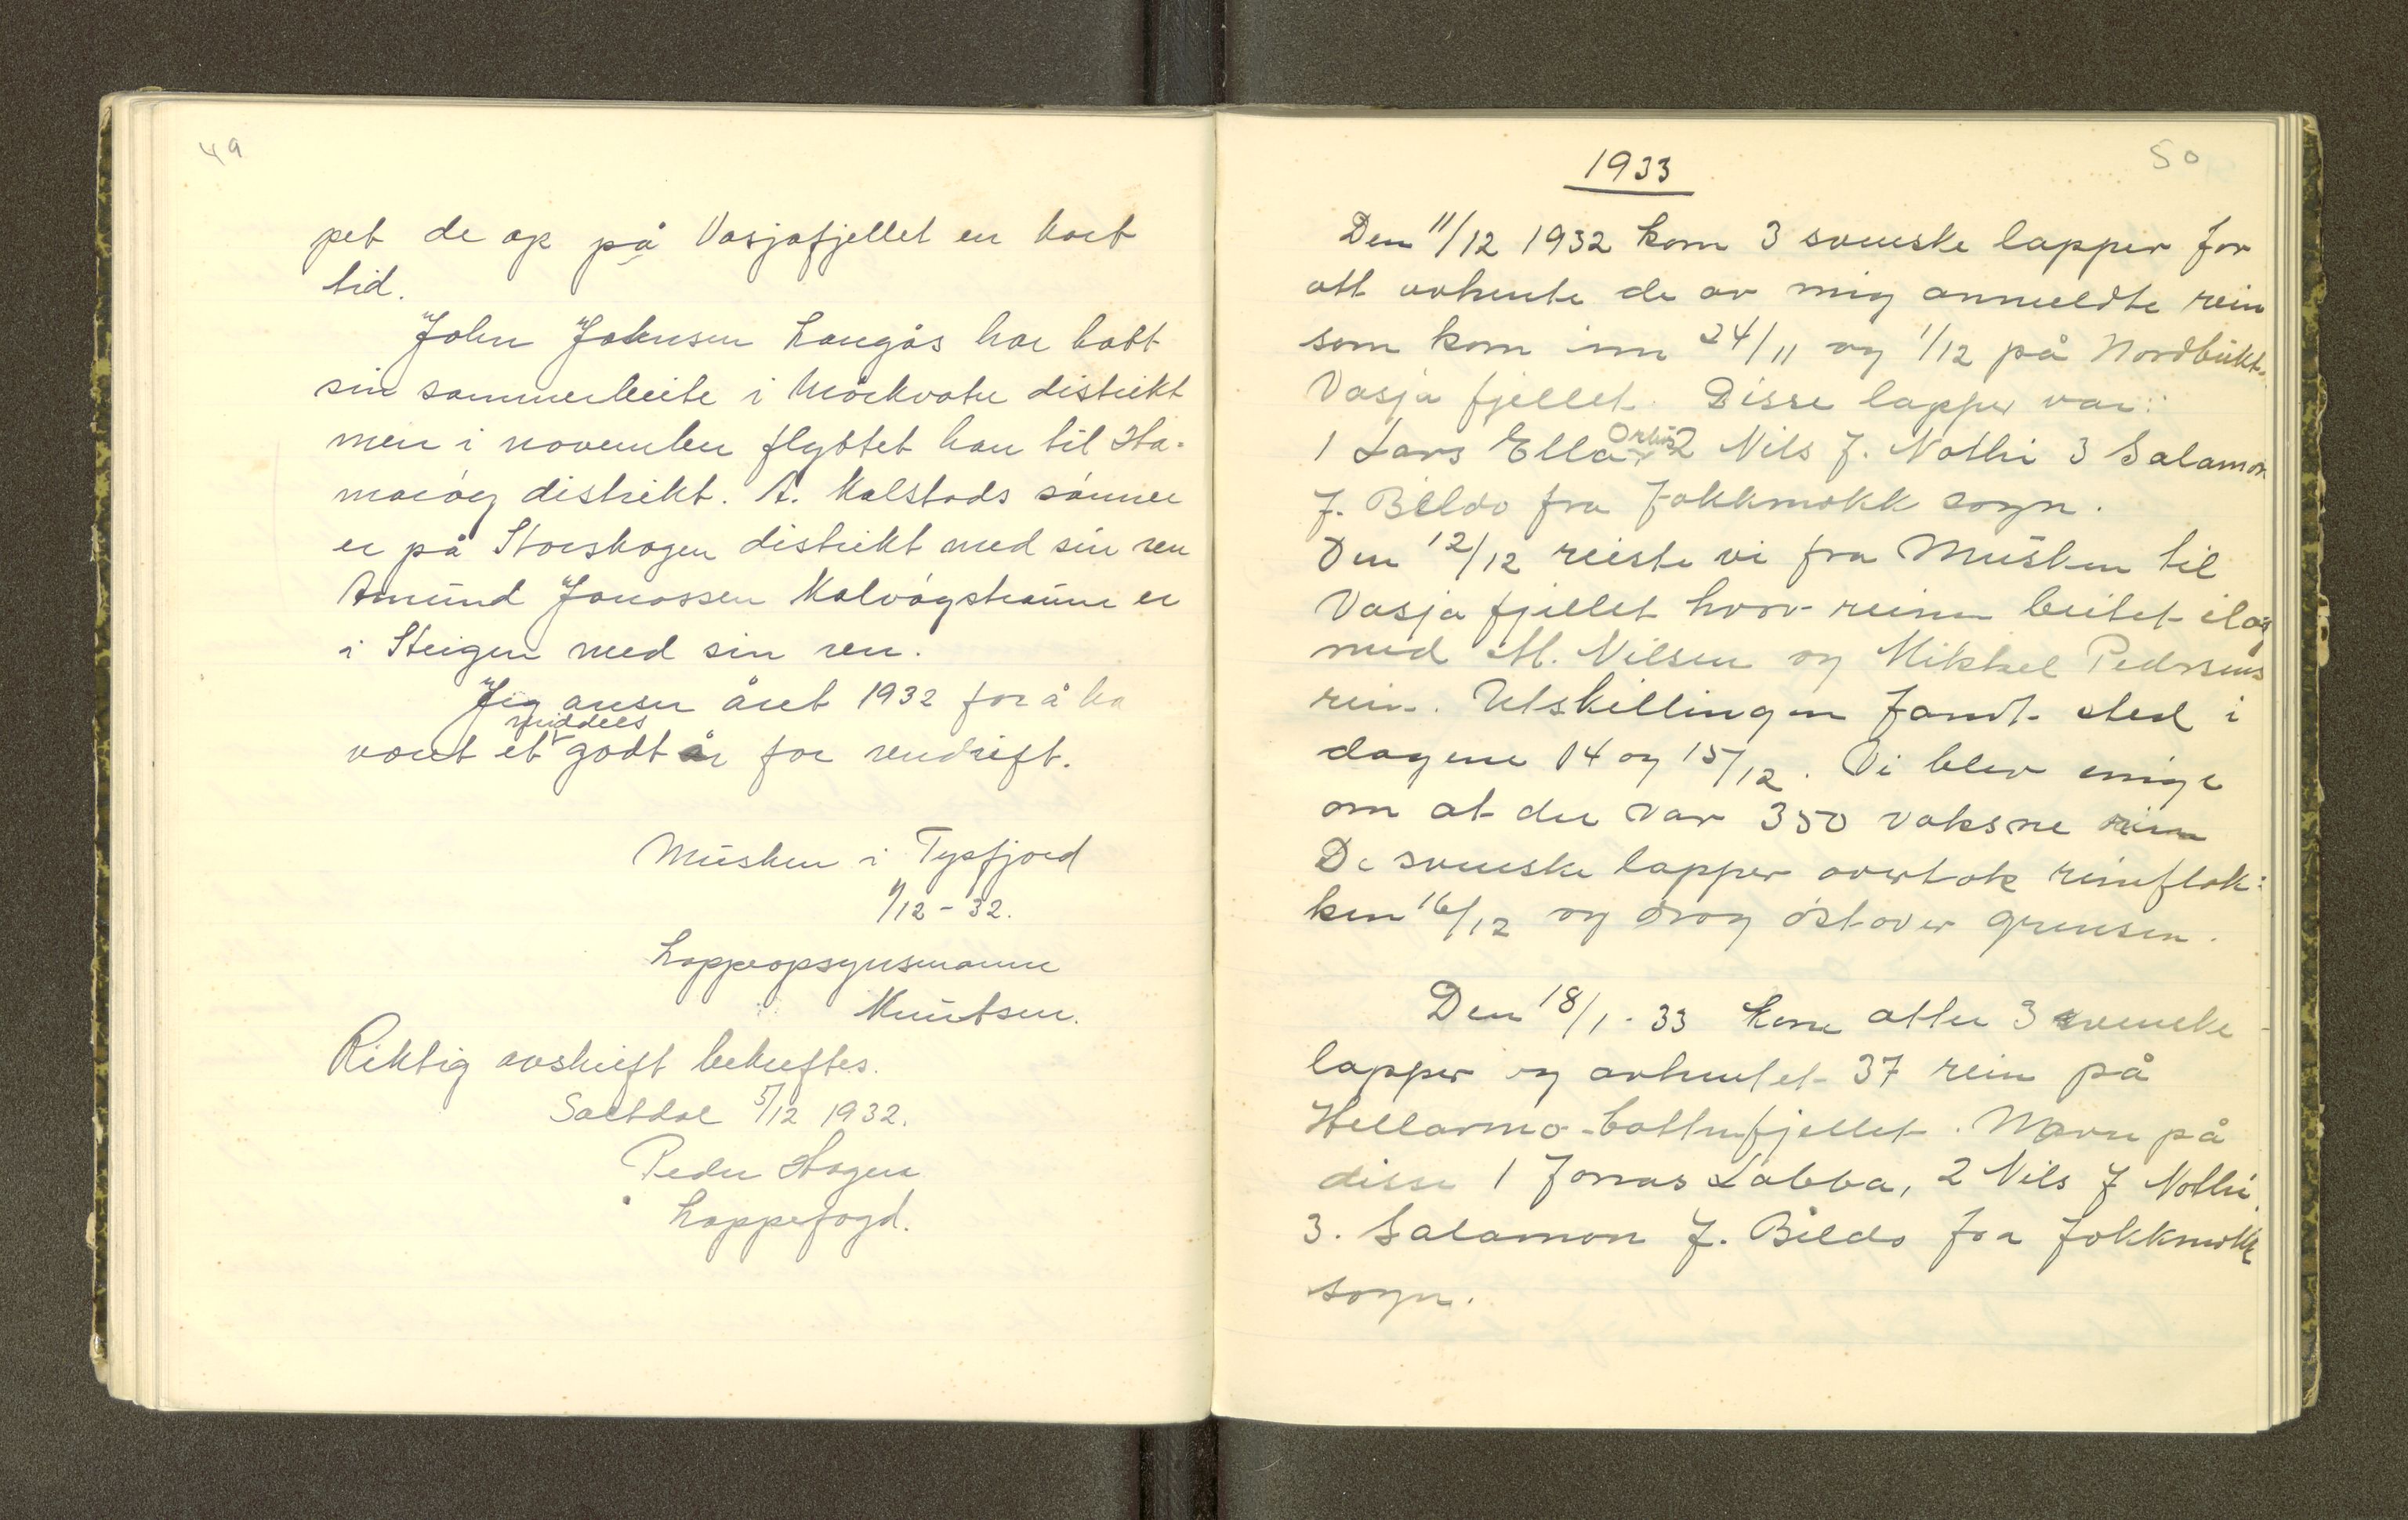 49
pet de op på Vasjafjellet en kort
tid.
John Johnsen Langås har hatt
sin sommerbeite i Mörkvatn distrikt
men i november flyttet han til Ha-
maröy distrikt. A. Kalstads sönner
er på Storskogen distrikt med sin ren
Amund Jonassen Kalvågstraune er
i Steigen med sin ren.
Jeg anser året 1932 for å ha
middels
vært et godt år for rendrift.
Musken i Tysfjord
1/12-32.
Lappeopsynsmann
Knutsen.
Riktig avskrift bekreftes.
Saltdal 5/12 1932.
Peder Hagen
Lappefogd.
50
1933
Den 11/12 1932 kom 3 svenske lapper for
att avhente de av mig anmeldte rein
som kom inn 24/11 og 1/12 på Nordbukt-
Vasja fjellet. Disse lapper var:
1 Lars Ella 2 Nils J. Notti 3 Salamon
J. Bildo fra Jokkmokk sogn.
Den 12/12 reiste vi fra Musken til
Vasja fjellet hvor reinen beitet ilag
med M. Nilsen og Mikkel Pedersens
rein. Utskillingen fandt sted i
dagene 14 og 15/12. Vi blev enige
om at der var 350 voksne rein
De svenske lapper overtok reinflok-
ken 16/12 og drog östover grensen.
Den 18/1-33 kom atter 3 svenske
lapper og avhentet 37 rein på
Hellarmo-bottnfjellet. Navn på
disse 1 Jonas Labba, 2 Nils J Notti
3. Salamon J. Bildo fra Jokkmokk
sogn.